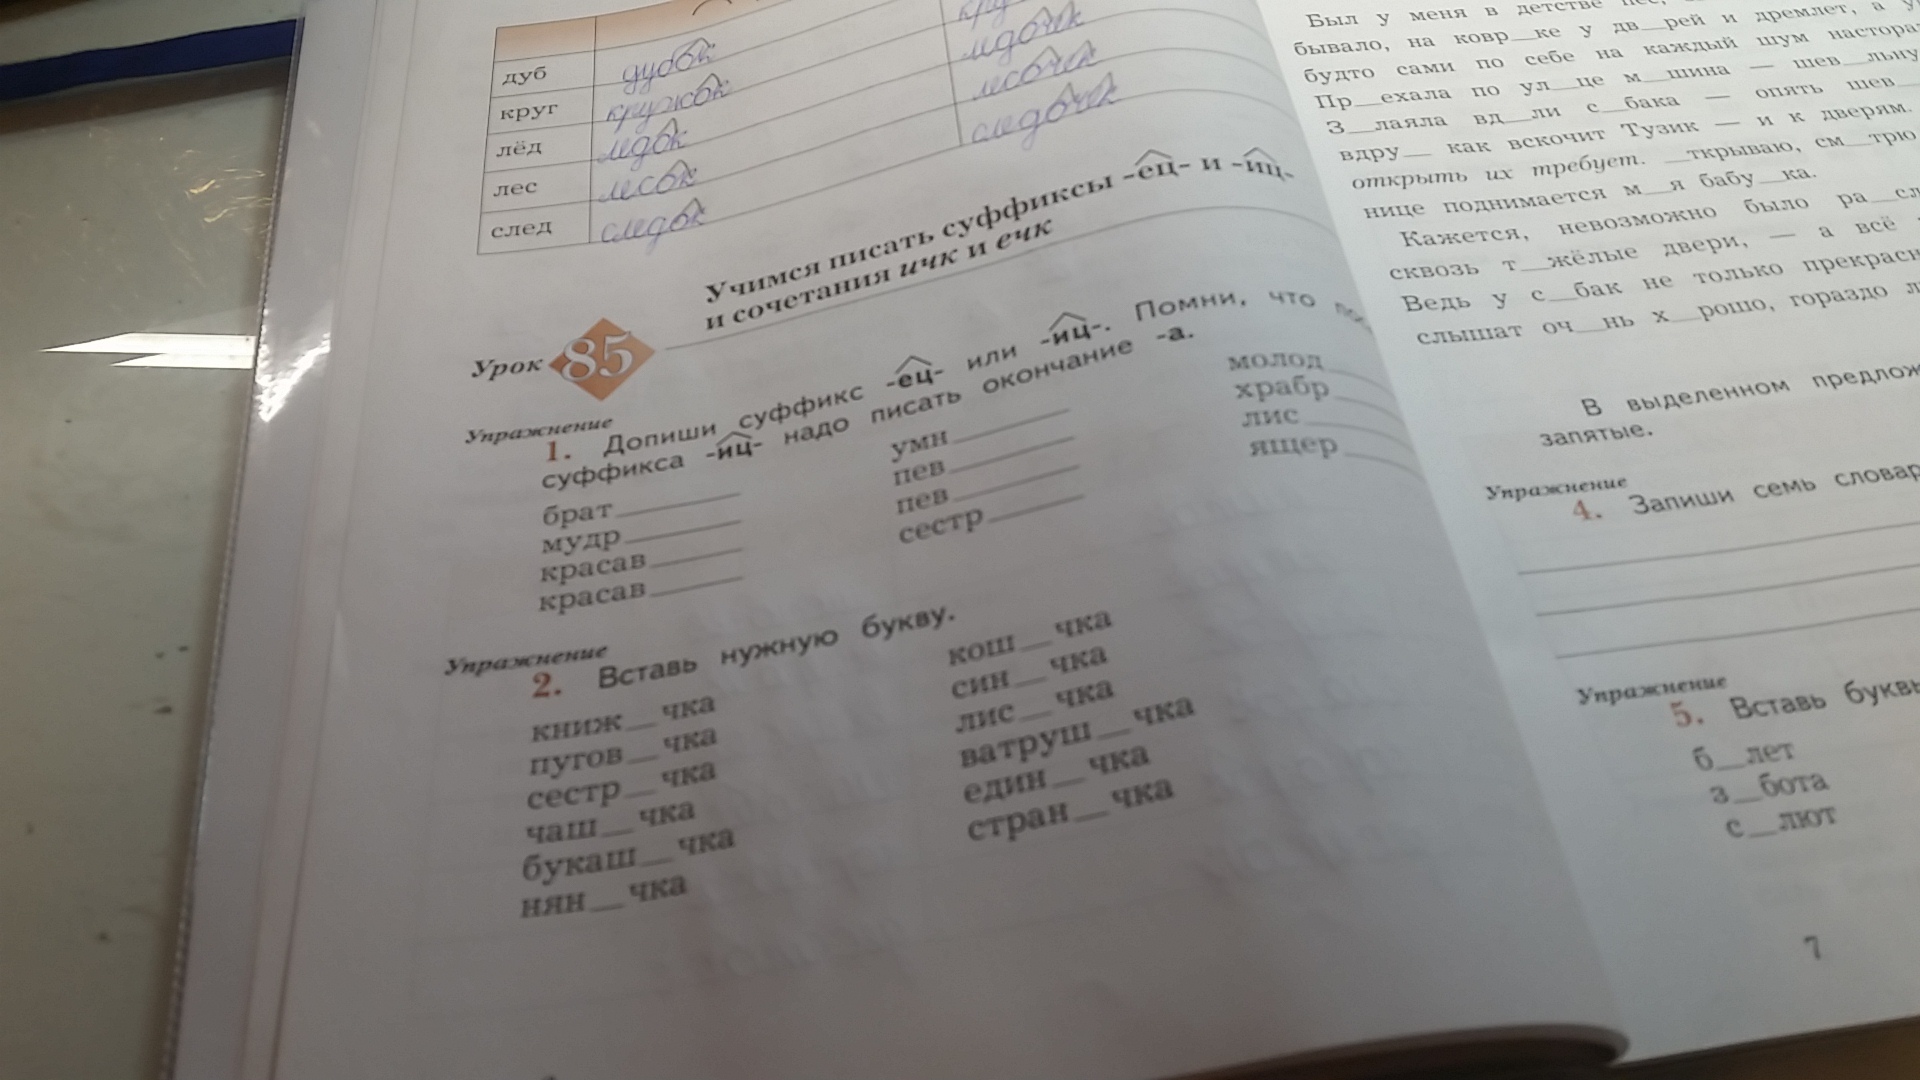 дуб дубок
круг кружок ледочек
лёд ледок лесочек
лес лесок следочек
след следок
Учимся писать суффиксы -ец- и -иц-
и сочетания ичк и ечк
Урок 85
Упражнение
1. Допиши суффикс -ец- или -иц-. Помни, что
суффикса -иц- надо писать окончание -а.
брат____
мудр____
красав____
красав____
умн____
пев____
пев____
сестр____
молод____
храбр____
лис____
ящер____
Упражнение
2. Вставь нужную букву.
книж__чка
пугов__чка
сестр__чка
чаш__чка
букаш__чка
нян__чка
кош__чка
син__чка
лис__чка
ватруш__чка
един__чка
стран__чка
Был у меня в детстве
бывало, на ковр__ке у дв__рей и дремлет, а
будто сами по себе на каждый шум
Пр__ехала по ул__це м__шина — шев__льну
З__лаяла вд__ли с__бака — опять шев__
вдру__ как вскочит Тузик — и к дверям.
открыть их требует. __ткрываю, см__трю
нице поднимается м__я бабу__ка.
Кажется, невозможно было ра__сл
сквозь т__жёлые двери, — а всё
Ведь у с__бак не только
слышат оч__нь х__рошо, гораздо
В выделенном
запятые.
Упражнение
4. Запиши семь
Упражнение
5. Вставь буквы
б__лет
з__бота
с__лют
7